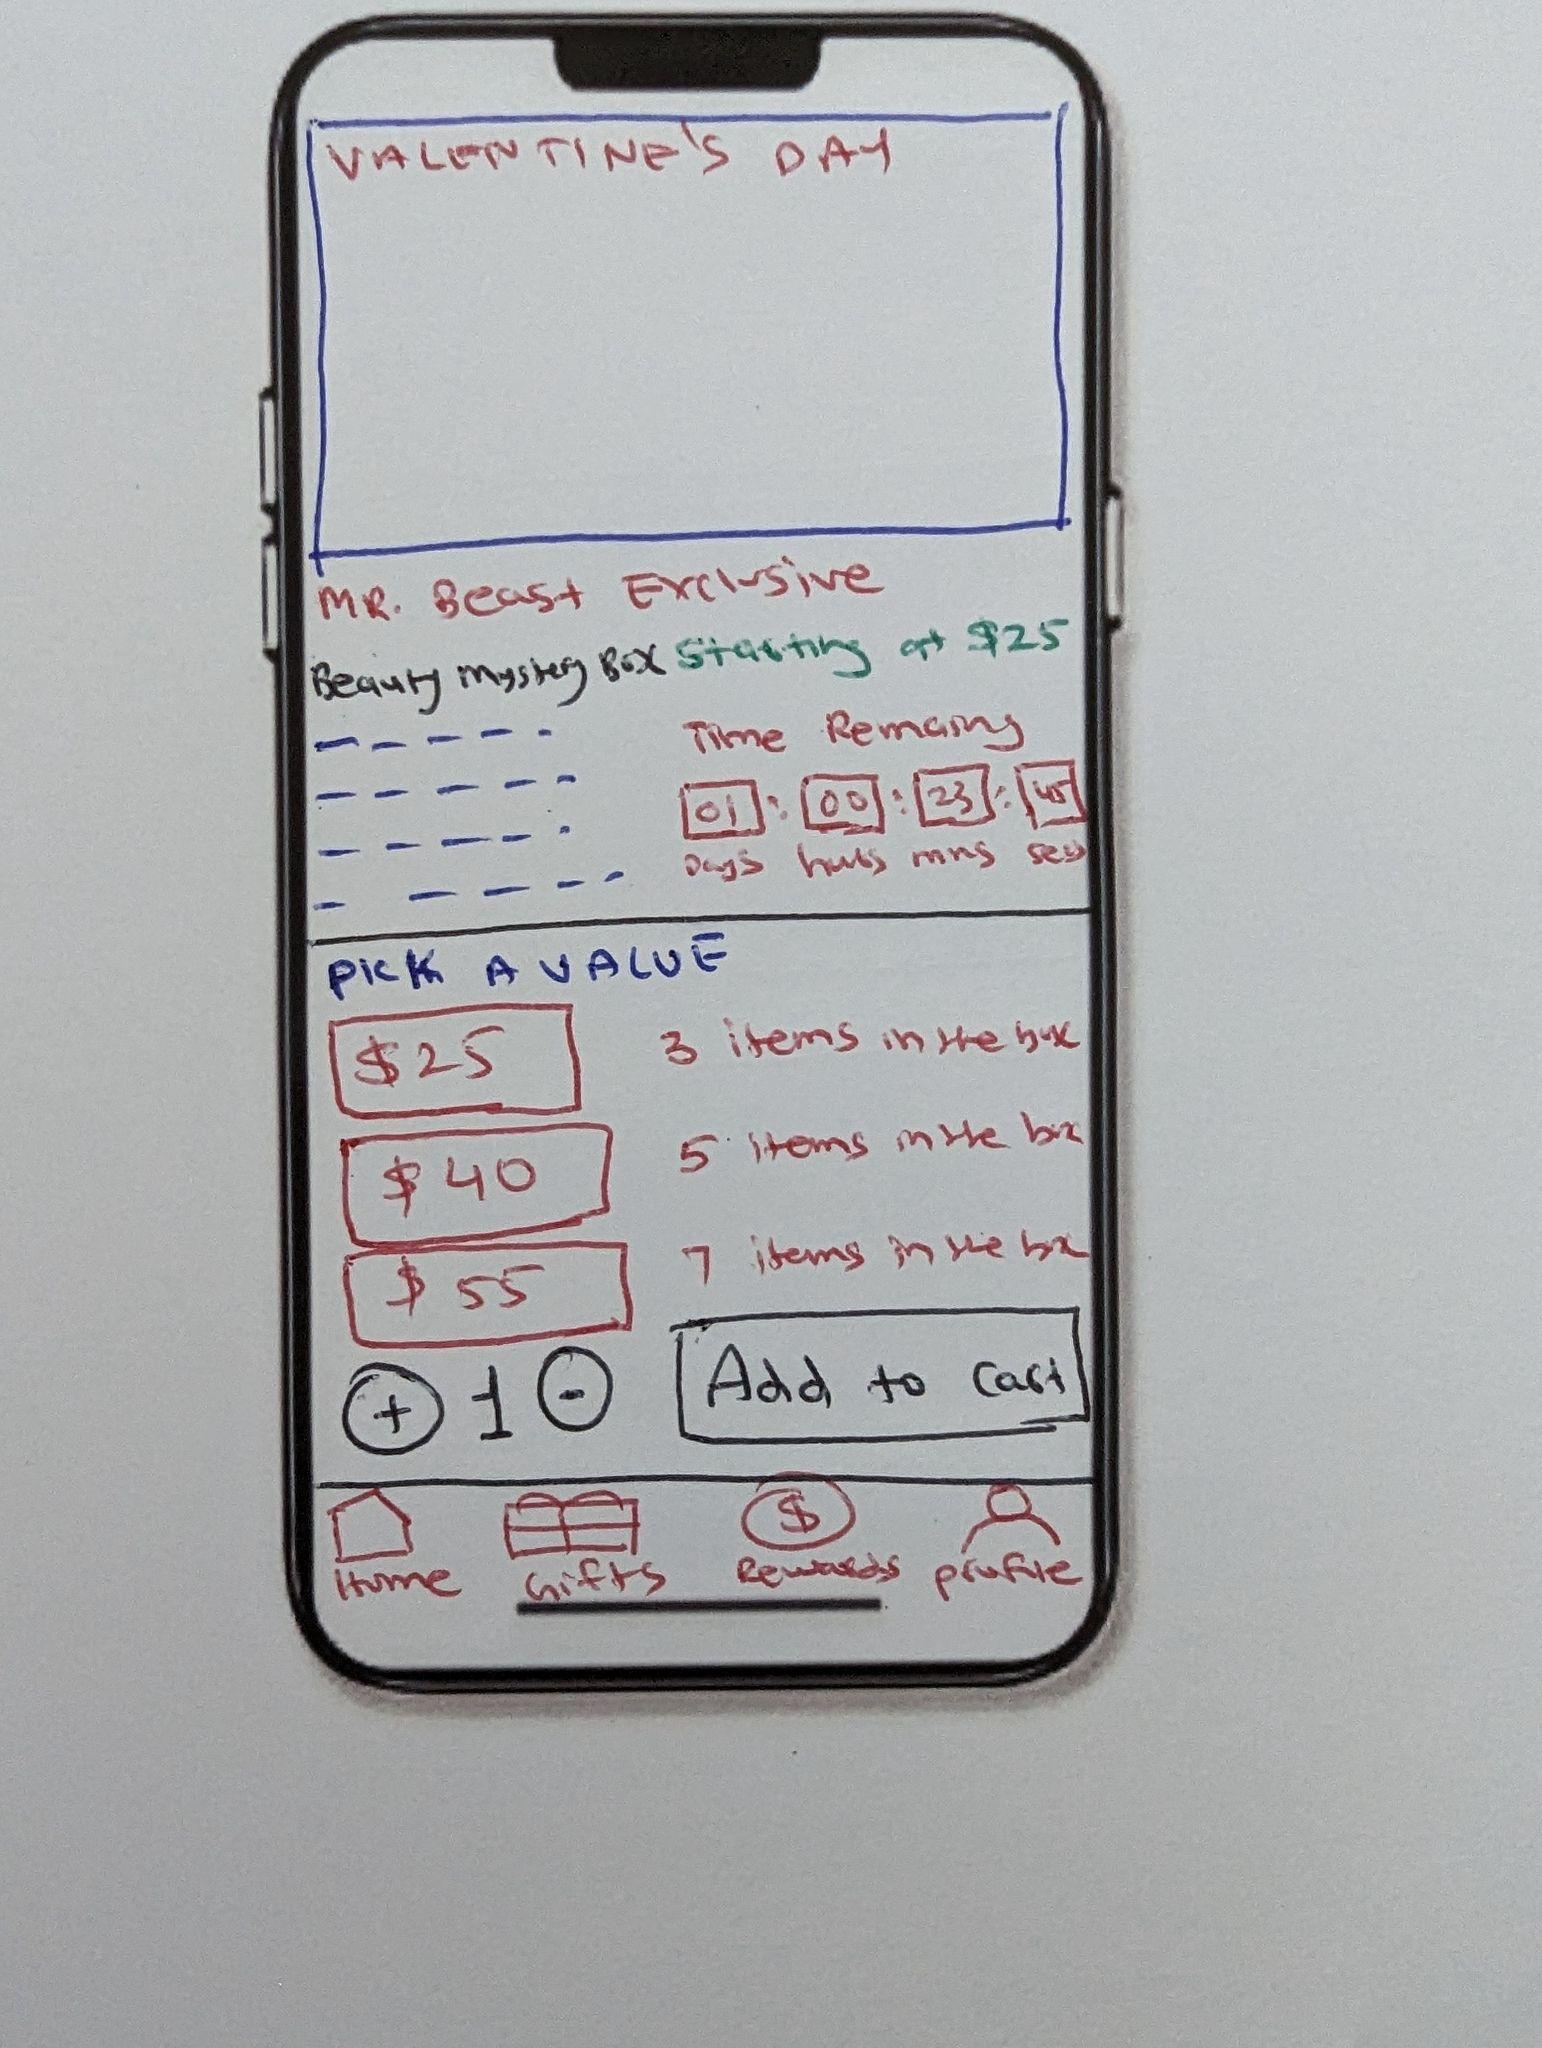 VALENTINE'S DAY
MR. Beast Exclusive
Beauty mystery Box Starting at $25
Time Remaing
01 : 00 : 23 : 45
Days hurs mns secs
PICK A VALUE
$25 3 items in the box
$40 5 items in the box
$55 7 items in the box
+ 1 - Add to Cart
$
Home Gifts Rewards profile